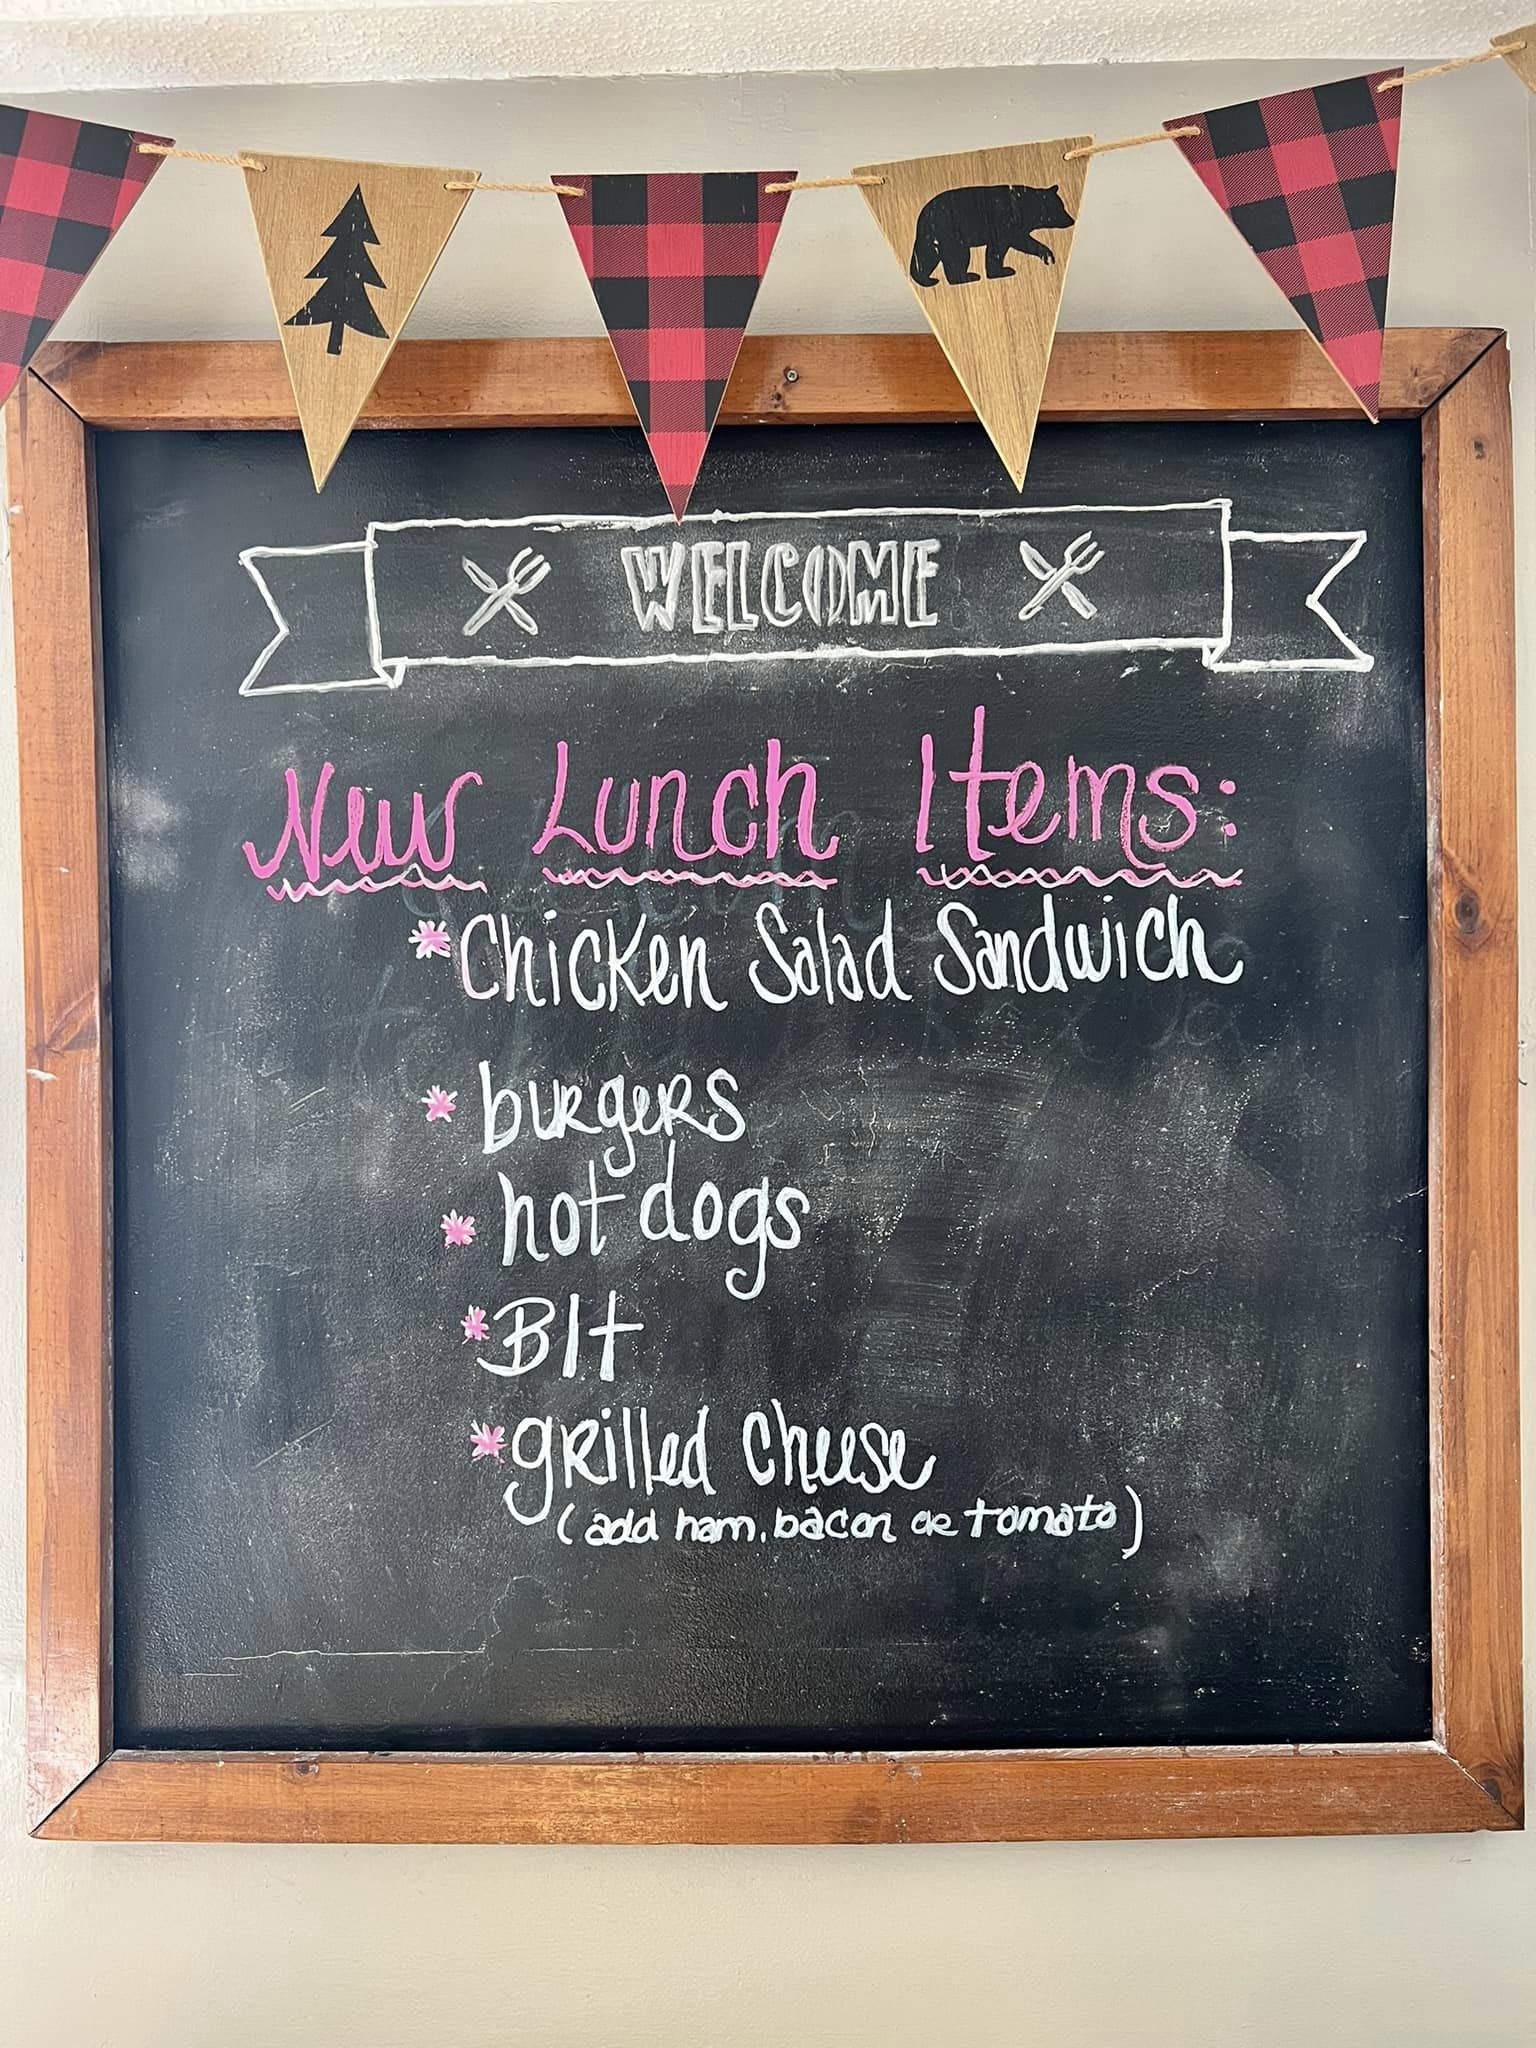 WELCOME
New Lunch Items:
*Chicken Salad Sandwich
* burgers
* hot dogs
* Blt
* grilled cheese
(add ham, bacon or tomato)